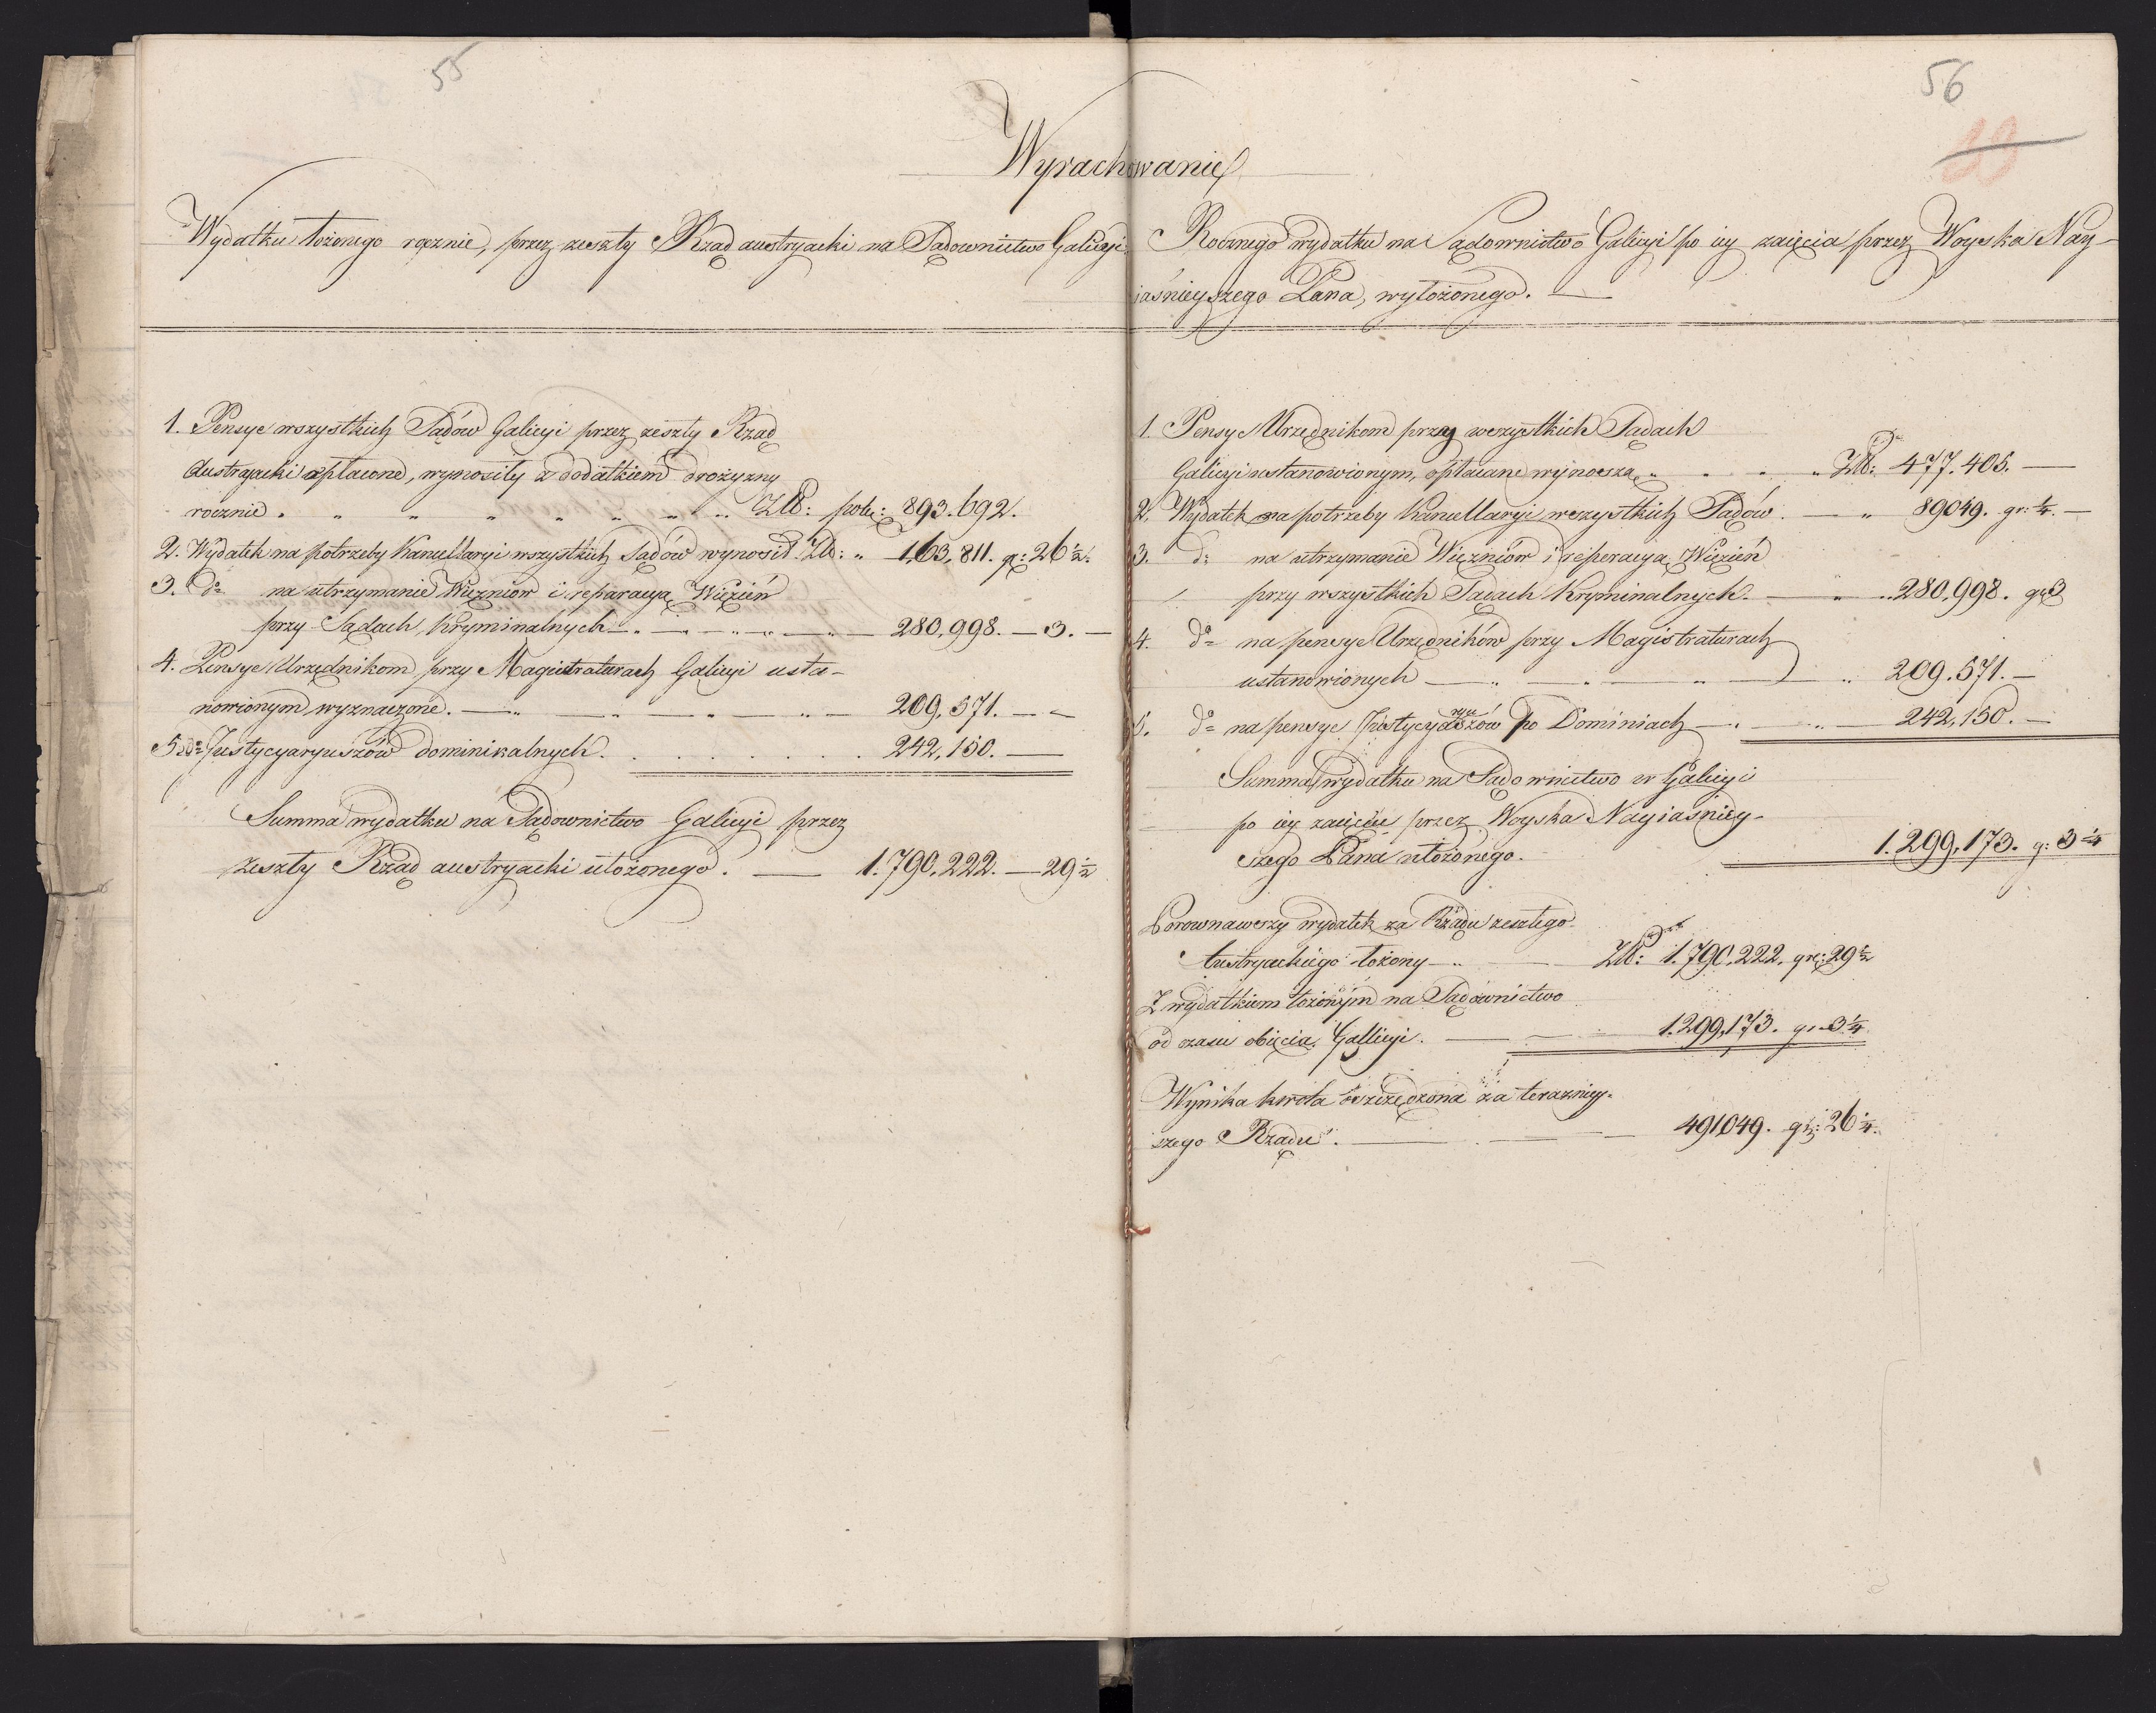 55
56
Wyrachowanie
Wydatku łożonego rocznie, przez zeszły Rząd austryacki na Sądownictwo Galicyi.
1. Pensye wszystkich Sądów Galicyi przez zeszły Rząd
Austryacki opłacone, wynosiły z dodatkiem drożyzny
rocznie . " " " " " " " Złł: pols: 893.692.
2. Wydatek na potrzeby Kancellaryi wszystkich Sądów wynosił. Złł: " 163,811. g: 26 1/2.
3. do na utrzymanie Więzniów i reparacyą Więzień
przy Sądach Kryminalnych — 280,998. — 3. —
4. Pensye Urzędnikom przy Magistraturach Galicyi usta-
nowionym wyznaczone. — 209,571. — —
5. do Justycyaryuszów dominikalnych . . . . . . . . 242,150. —
Summa wydatku na Sądownictwo Galicyi przez
zeszły Rząd austryacki ułożonego. — 1.790.222. — 29 1/2
Rocznego wydatku na Sądownictwo Galicyi po iey zaięcia przez Woyska Nay-
iaśnieyszego Pana, wyłożonego. —
1. Pensye Urzędnikom przy wszystkich Sądach
Galicyi ustanowionym, opłacane wynoszą " " " Złł: 477.405. —
2. Wydatek na potrzeby Kancellaryi wszystkich Sądów. — " 89049. gr: 1/4. —
3. do na utrzymanie Więzniów i reperacyą Więzień
przy wszystkich Sądach Kryminalnych. — " 280,998. gr 3
4. do na pensye Urzędników przy Magistraturach
ustanowionych — " — " — 209.571. —
5. do na pensye Justycyaryuszów po Dominiach — " 242,150. —
Summa wydatku na Sądownictwo w Galicyi
po iey zaięciu przez Woyska Nayiaśniey-
szego Pana ułożonego. 1.299,173. g: 3 1/4
Porownawszy wydatek za Rządu zeszłego
Austryackiego łożony — " — Złł: 1.790.222. gr: 29 1/2
Z wydatkiem łożonym na Sądownictwo
od czasu obięcia Gallicyi. — 1.299,173. gr 3 1/4
Wynika kwota oszczędzona za teraźniey-
szego Rządu. — 491049. gr: 26 1/4.